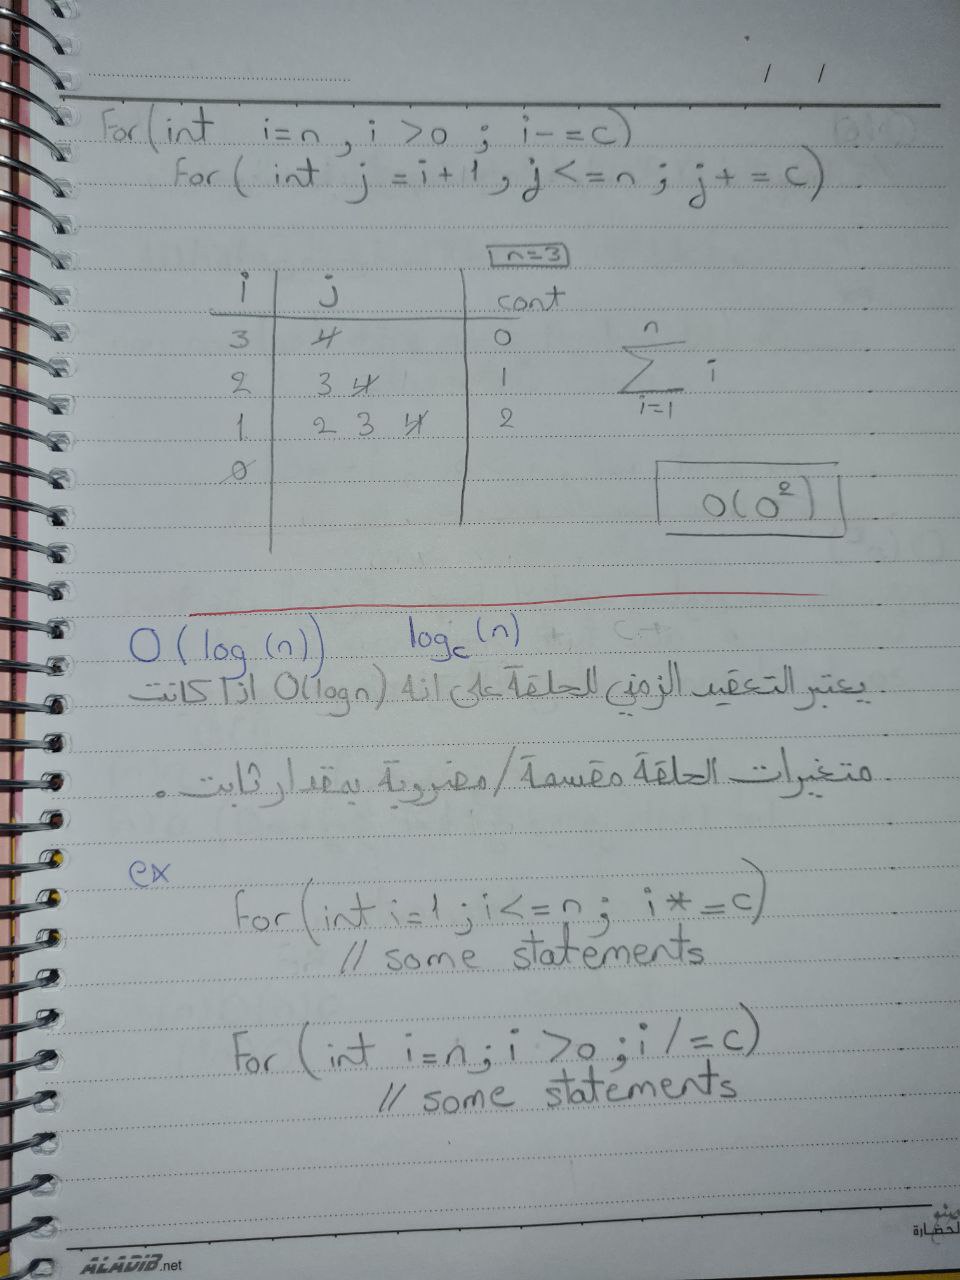 / /
For(int i=n , i >0 ; i-=c)
For( int j =i+1 , j<=n ; j+=c)
n=3
i j cont
3 4 0
2 3 4 1
1 2 3 4 2
0
n
∑ i
i=1
O(O²)
O(log(n)) log_c(n)
يعتبر التعقيد الزمني للحلقة على انه O(logn) اذا كانت
متغيرات الحلقة مقسمة/مضروبة بمقدار ثابت.
ex
For(int i=1 ; i<=n ; i*=c)
// some statements
For (int i=n ; i >0 ; i/=c)
// some statements
الحضارة
ALADIB.net